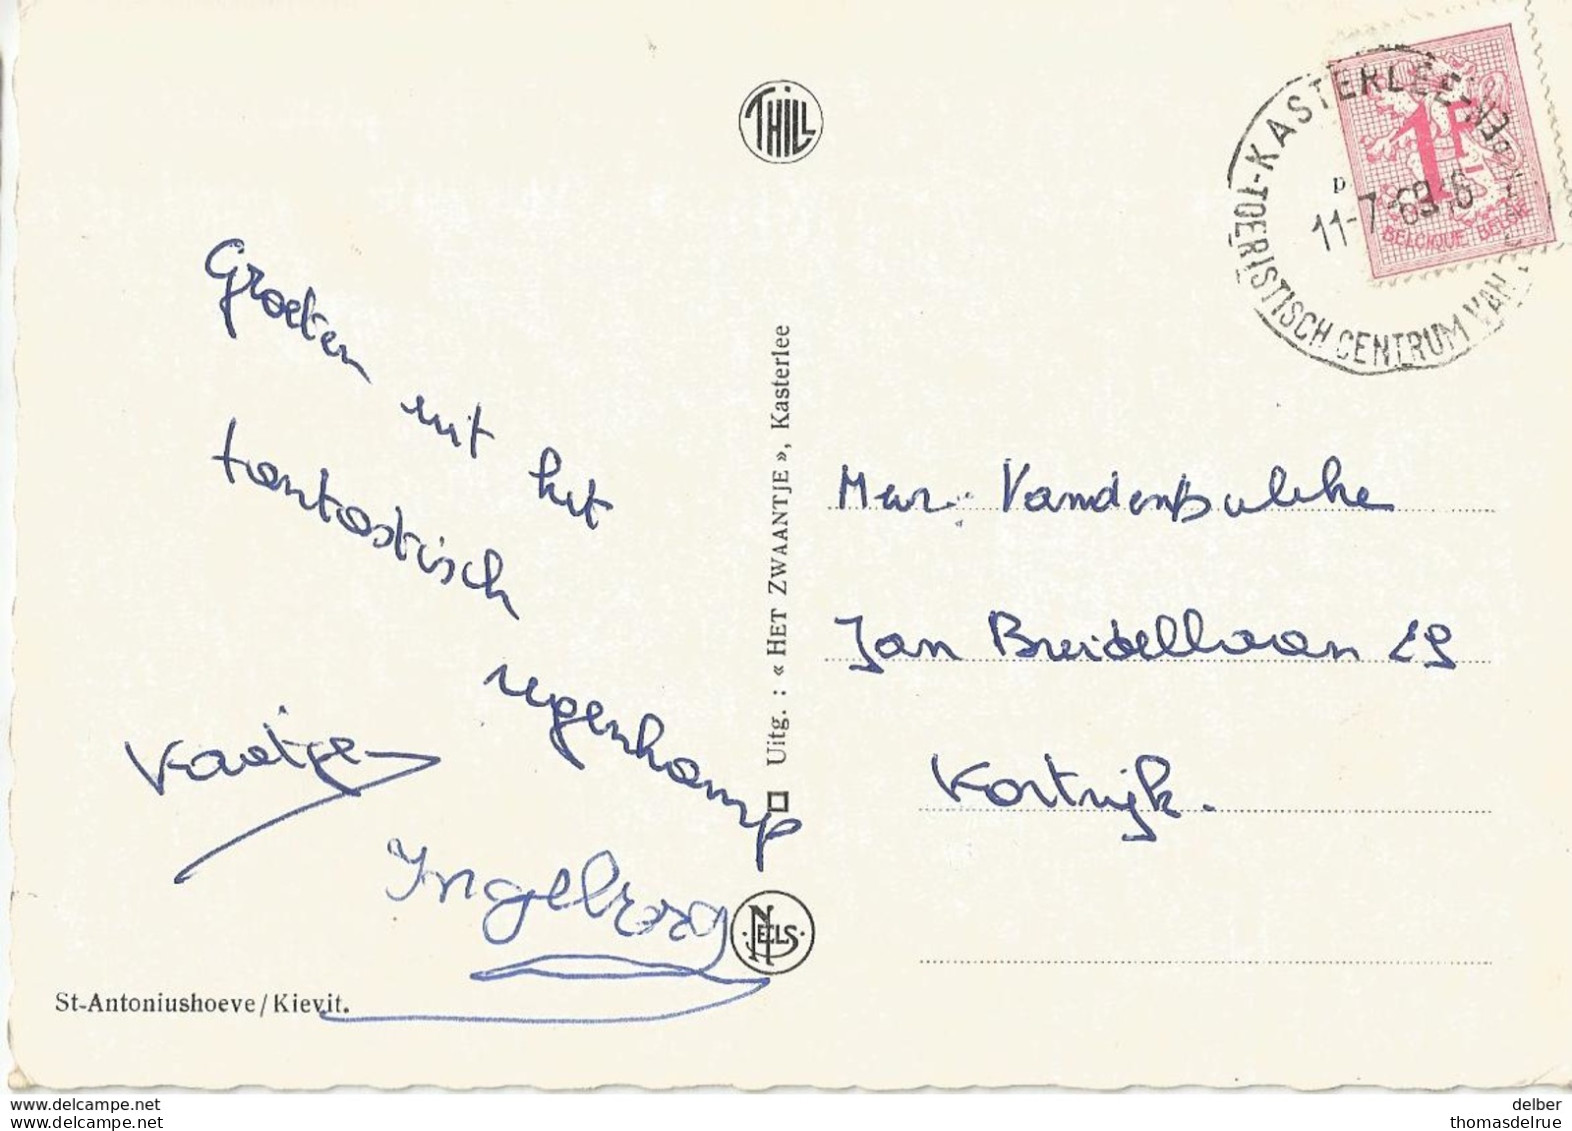 THILL
KASTERLEE
TOERISTISCH CENTRUM VAN
11-7-69
1F
BELGIQUE-BELGIE
Groeten uit het
fantastisch
regenkamp
Kaatje
Ingeborg
St-Antoniushoeve/Kievit.
Uitg. : « HET ZWAANTJE », Kasterlee
NELS
Mevr. VandenBulcke
Jan Breidellaan 29
Kortrijk.
www.delcampe.net
www.delcampe.net
delber
thomasdelrue